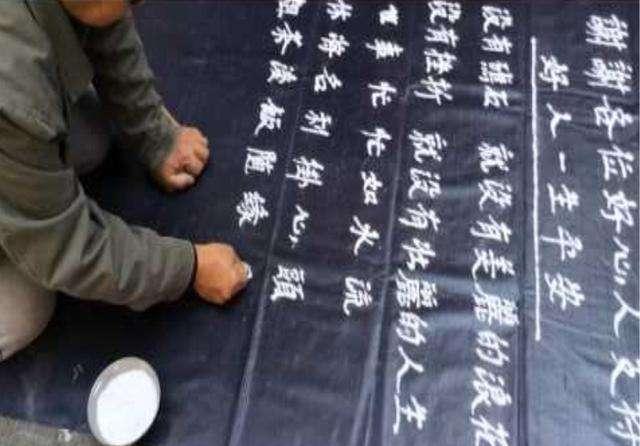 謝謝各位好心人支持
好人一生平安
没有礁石 就没有美麗的浪花
没有挫折 就没有壯麗的人生
世事忙忙如水流
休將名利掛心頭
粗茶淡飯隨緣